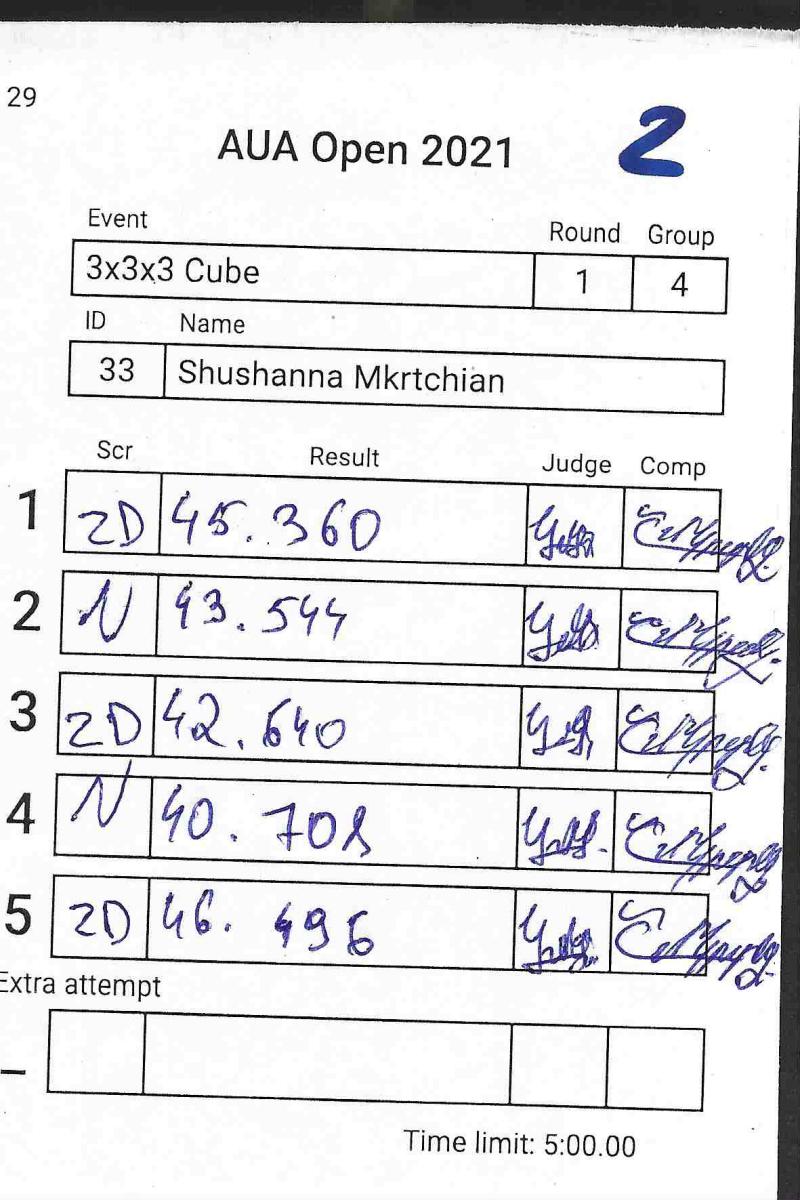 29
AUA Open 2021 2
Event Round Group
3x3x3 Cube 1 4
ID Name
33 Shushanna Mkrtchian
Scr Result Judge Comp
1 ZD 45.360
2 N 43.544
3 ZD 42.640
4 N 40.708
5 ZD 46.496
Extra attempt
–
Time limit: 5:00.00